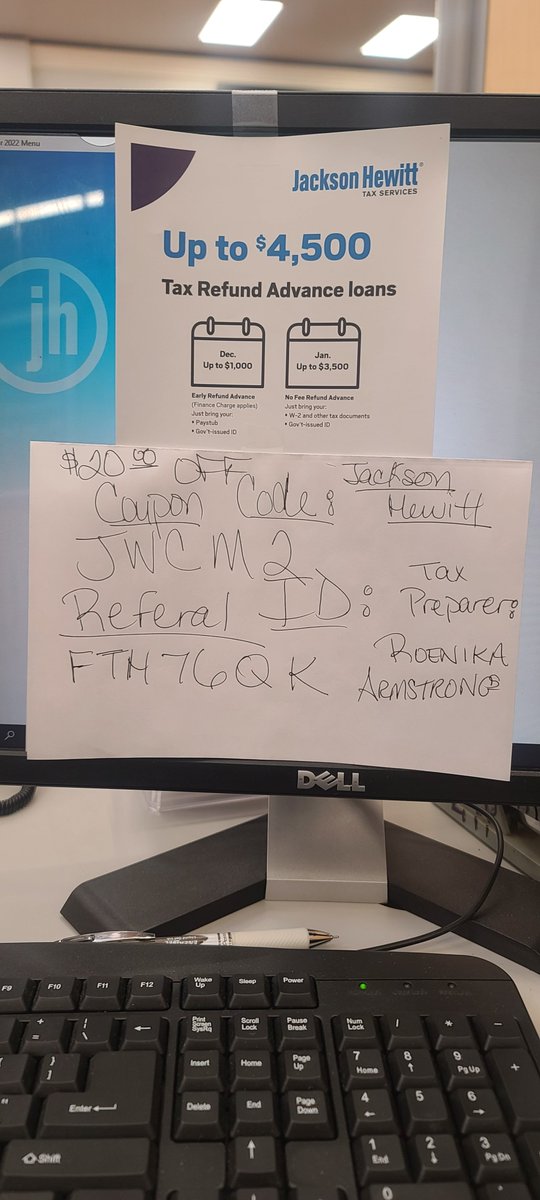 r 2022 Menu
jh
Jackson Hewitt®
TAX SERVICES
Up to $4,500
Tax Refund Advance loans
Dec.
Up to $1,000
Jan.
Up to $3,500
Early Refund Advance
(Finance Charge applies)
Just bring your:
• Paystub
• Gov't-issued ID
No Fee Refund Advance
Just bring your:
• W-2 and other tax documents
• Gov't-issued ID
$20.00 OFF
Coupon Code:
JWCM2
Referal ID:
FTH76QK
Jackson
Hewitt
Tax
Preparer:
ROENIKA
ARMSTRONG
DELL
F9 F10 F11 F12
Wake Up Sleep Power
Print Screen SysRq Scroll Lock Pause Break
Num Lock / * -
+ =
| \
←
Insert Home Page Up
7 Home 8 ↑ 9 Pg Up +
} ]
Enter ↵
Delete End Page Down
4 ← 5 6 →
Shift
↑
1 End 2 ↓ 3 Pg Dn
0